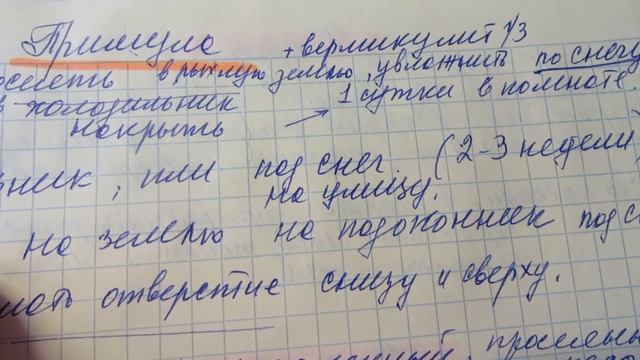 Примула + вермикулит 1/3
в рыхлую землю, увлажнить по снегу
в холодильник 1 сутки в комнате.
накрыть →
ник, или под снег. (2-3 недели
на улицу.
на землю на подоконник под с
лать отверстие снизу и сверху.